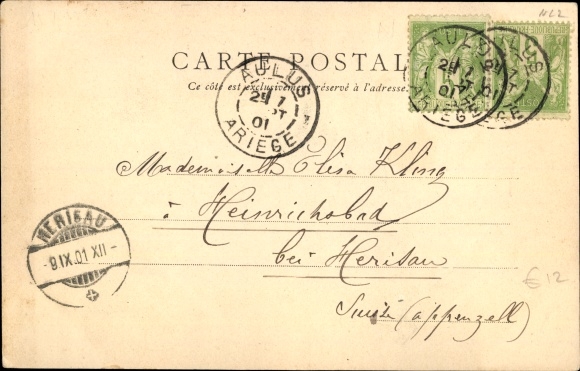 NL2
CARTE POSTALE
Ce côté est exclusivement réservé à l'adresse.
AULUS
2E 7
01
ARIEGE
AULUS
2E 7
01
ARIEGE
AULUS
01
ARIEGE
Mademoiselle Elisa Kling
à Heinrichsbad
bei Herisau
Suisse (appenzell)
HERISAU
-9 IX.01 XII-
€ 12